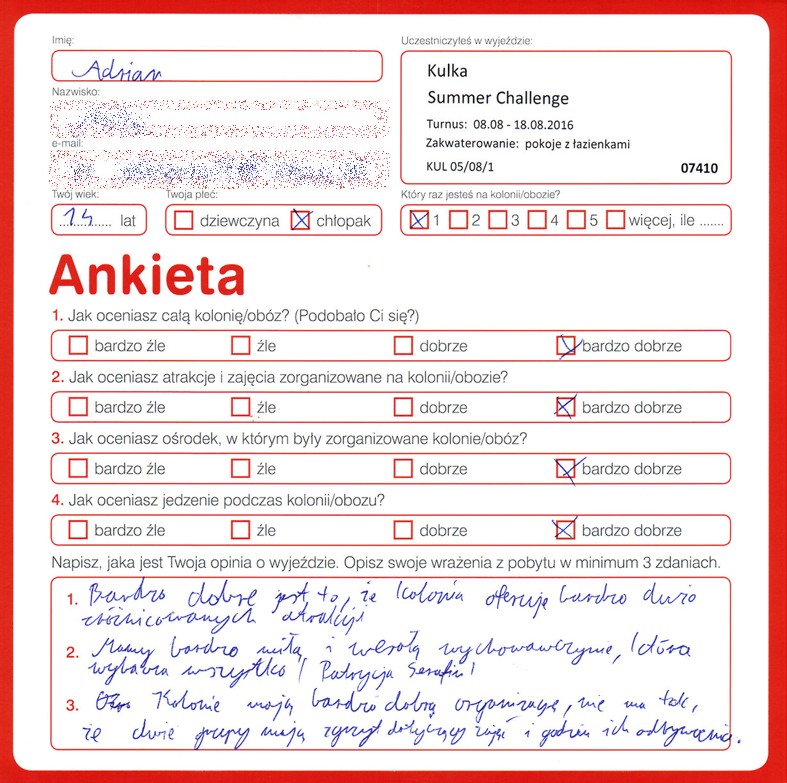 Imię:
Adrian
Nazwisko:
e-mail:
Twój wiek:
14 lat
Twoja płeć:
dziewczyna chłopak
Uczestniczyłeś w wyjeździe:
Kulka
Summer Challenge
Turnus: 08.08 - 18.08.2016
Zakwaterowanie: pokoje z łazienkami
KUL 05/08/1 07410
Który raz jesteś na kolonii/obozie?
1 2 3 4 5 więcej, ile .......
Ankieta
1. Jak oceniasz całą kolonię/obóz? (Podobało Ci się?)
bardzo źle źle dobrze bardzo dobrze
2. Jak oceniasz atrakcje i zajęcia zorganizowane na kolonii/obozie?
bardzo źle źle dobrze bardzo dobrze
3. Jak oceniasz ośrodek, w którym były zorganizowane kolonie/obóz?
bardzo źle źle dobrze bardzo dobrze
4. Jak oceniasz jedzenie podczas kolonii/obozu?
bardzo źle źle dobrze bardzo dobrze
Napisz, jaka jest Twoja opinia o wyjeździe. Opisz swoje wrażenia z pobytu w minimum 3 zdaniach.
1. Bardzo dobre jest to, że kolonia oferuje bardzo dużo
zróżnicowanych atrakcji
2. Mamy bardzo miłą i wesołą wychowawczynię, która
wybawia wszystko! Patrycja Serafin!
3. Kolonie mają bardzo dobrą organizację, nie ma tak,
że dwie grupy mają zgrzyt dotyczący zajęć i godzin ich odbywania.